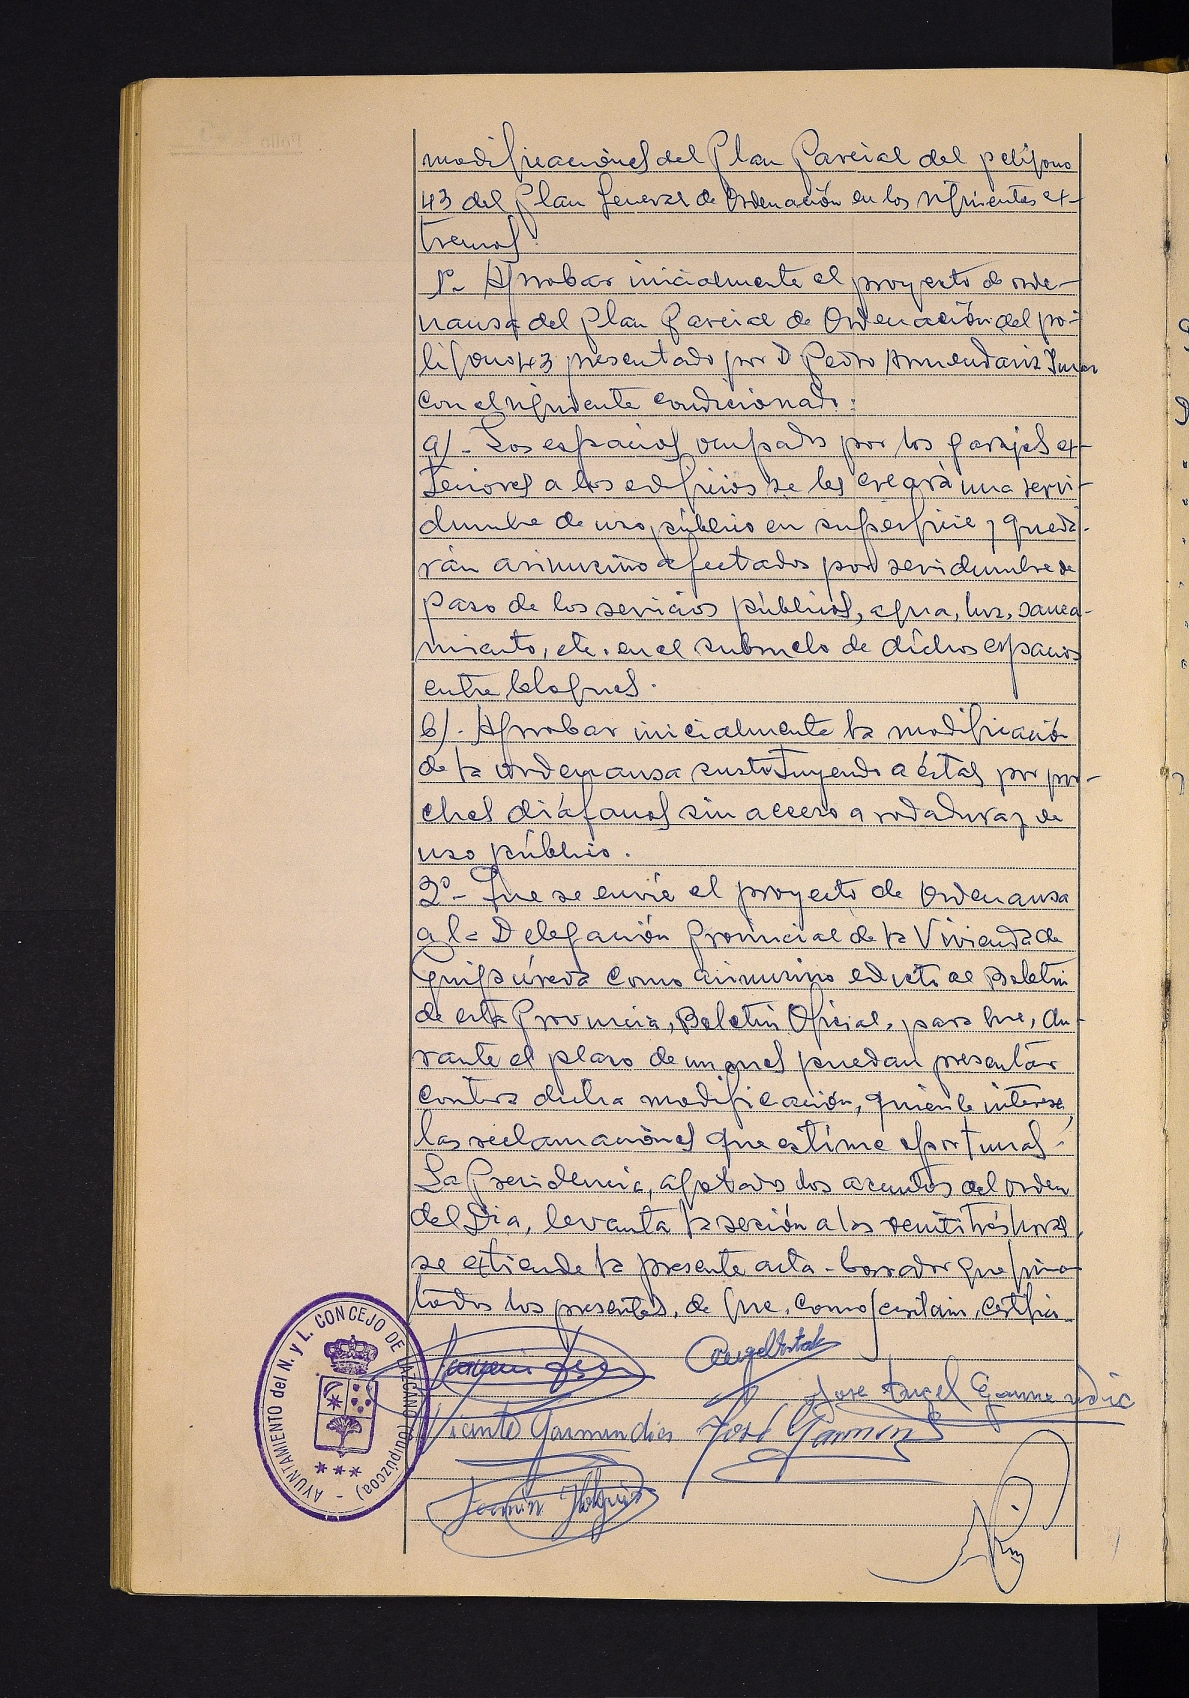 modificaciones del Plan Parcial del polígono
43 del Plan General de Ordenación en los siguientes ex-
tremos
1º- Aprobar inicialmente el proyecto de orde-
nansa del Plan Parcial de Ordenación del po-
lígono 43 presentado por D. Pedro Armendariz
con el siguiente condicionado:
a)- Los espacios ocupados por los garajes ex-
teriores a los edificios se les creará una servi-
dumbre de uso público en superficie y queda-
rán asimismo afectados por servidumbre de
paso de los servicios públicos, agua, luz, sanea-
miento, etc. en el subsuelo de dichos espacios
entre bloques.
b)- Aprobar inicialmente la modificación
de la ordenansa sustituyendo a éstas por por-
ches diáfanos sin acceso a rodadura y de
uso público.
2º- Que se envíe el proyecto de Ordenansa
a la Delegación Provincial de la Vivienda de
Guipúzcoa como asimismo edicto al Boletín
de esta Provincia, Boletín Oficial, para que, du-
rante el plazo de un mes puedan presentar
contra dicha modificación, quien le interese,
las reclamaciones que estime oportunas.
La Presidencia, agotados los asuntos del orden
del Dia, levanta la sesión a las veintitrés horas,
se extiende la presente acta-borrador que firman
todos los presentes, de que, como Secretario, certifico.
Jose Angel Garmendia
Vicente Garmendia José
Fermin
AYUNTAMIENTO del N. y L. CONCEJO DE LAZCANO (Guipúzcoa) -
Folio